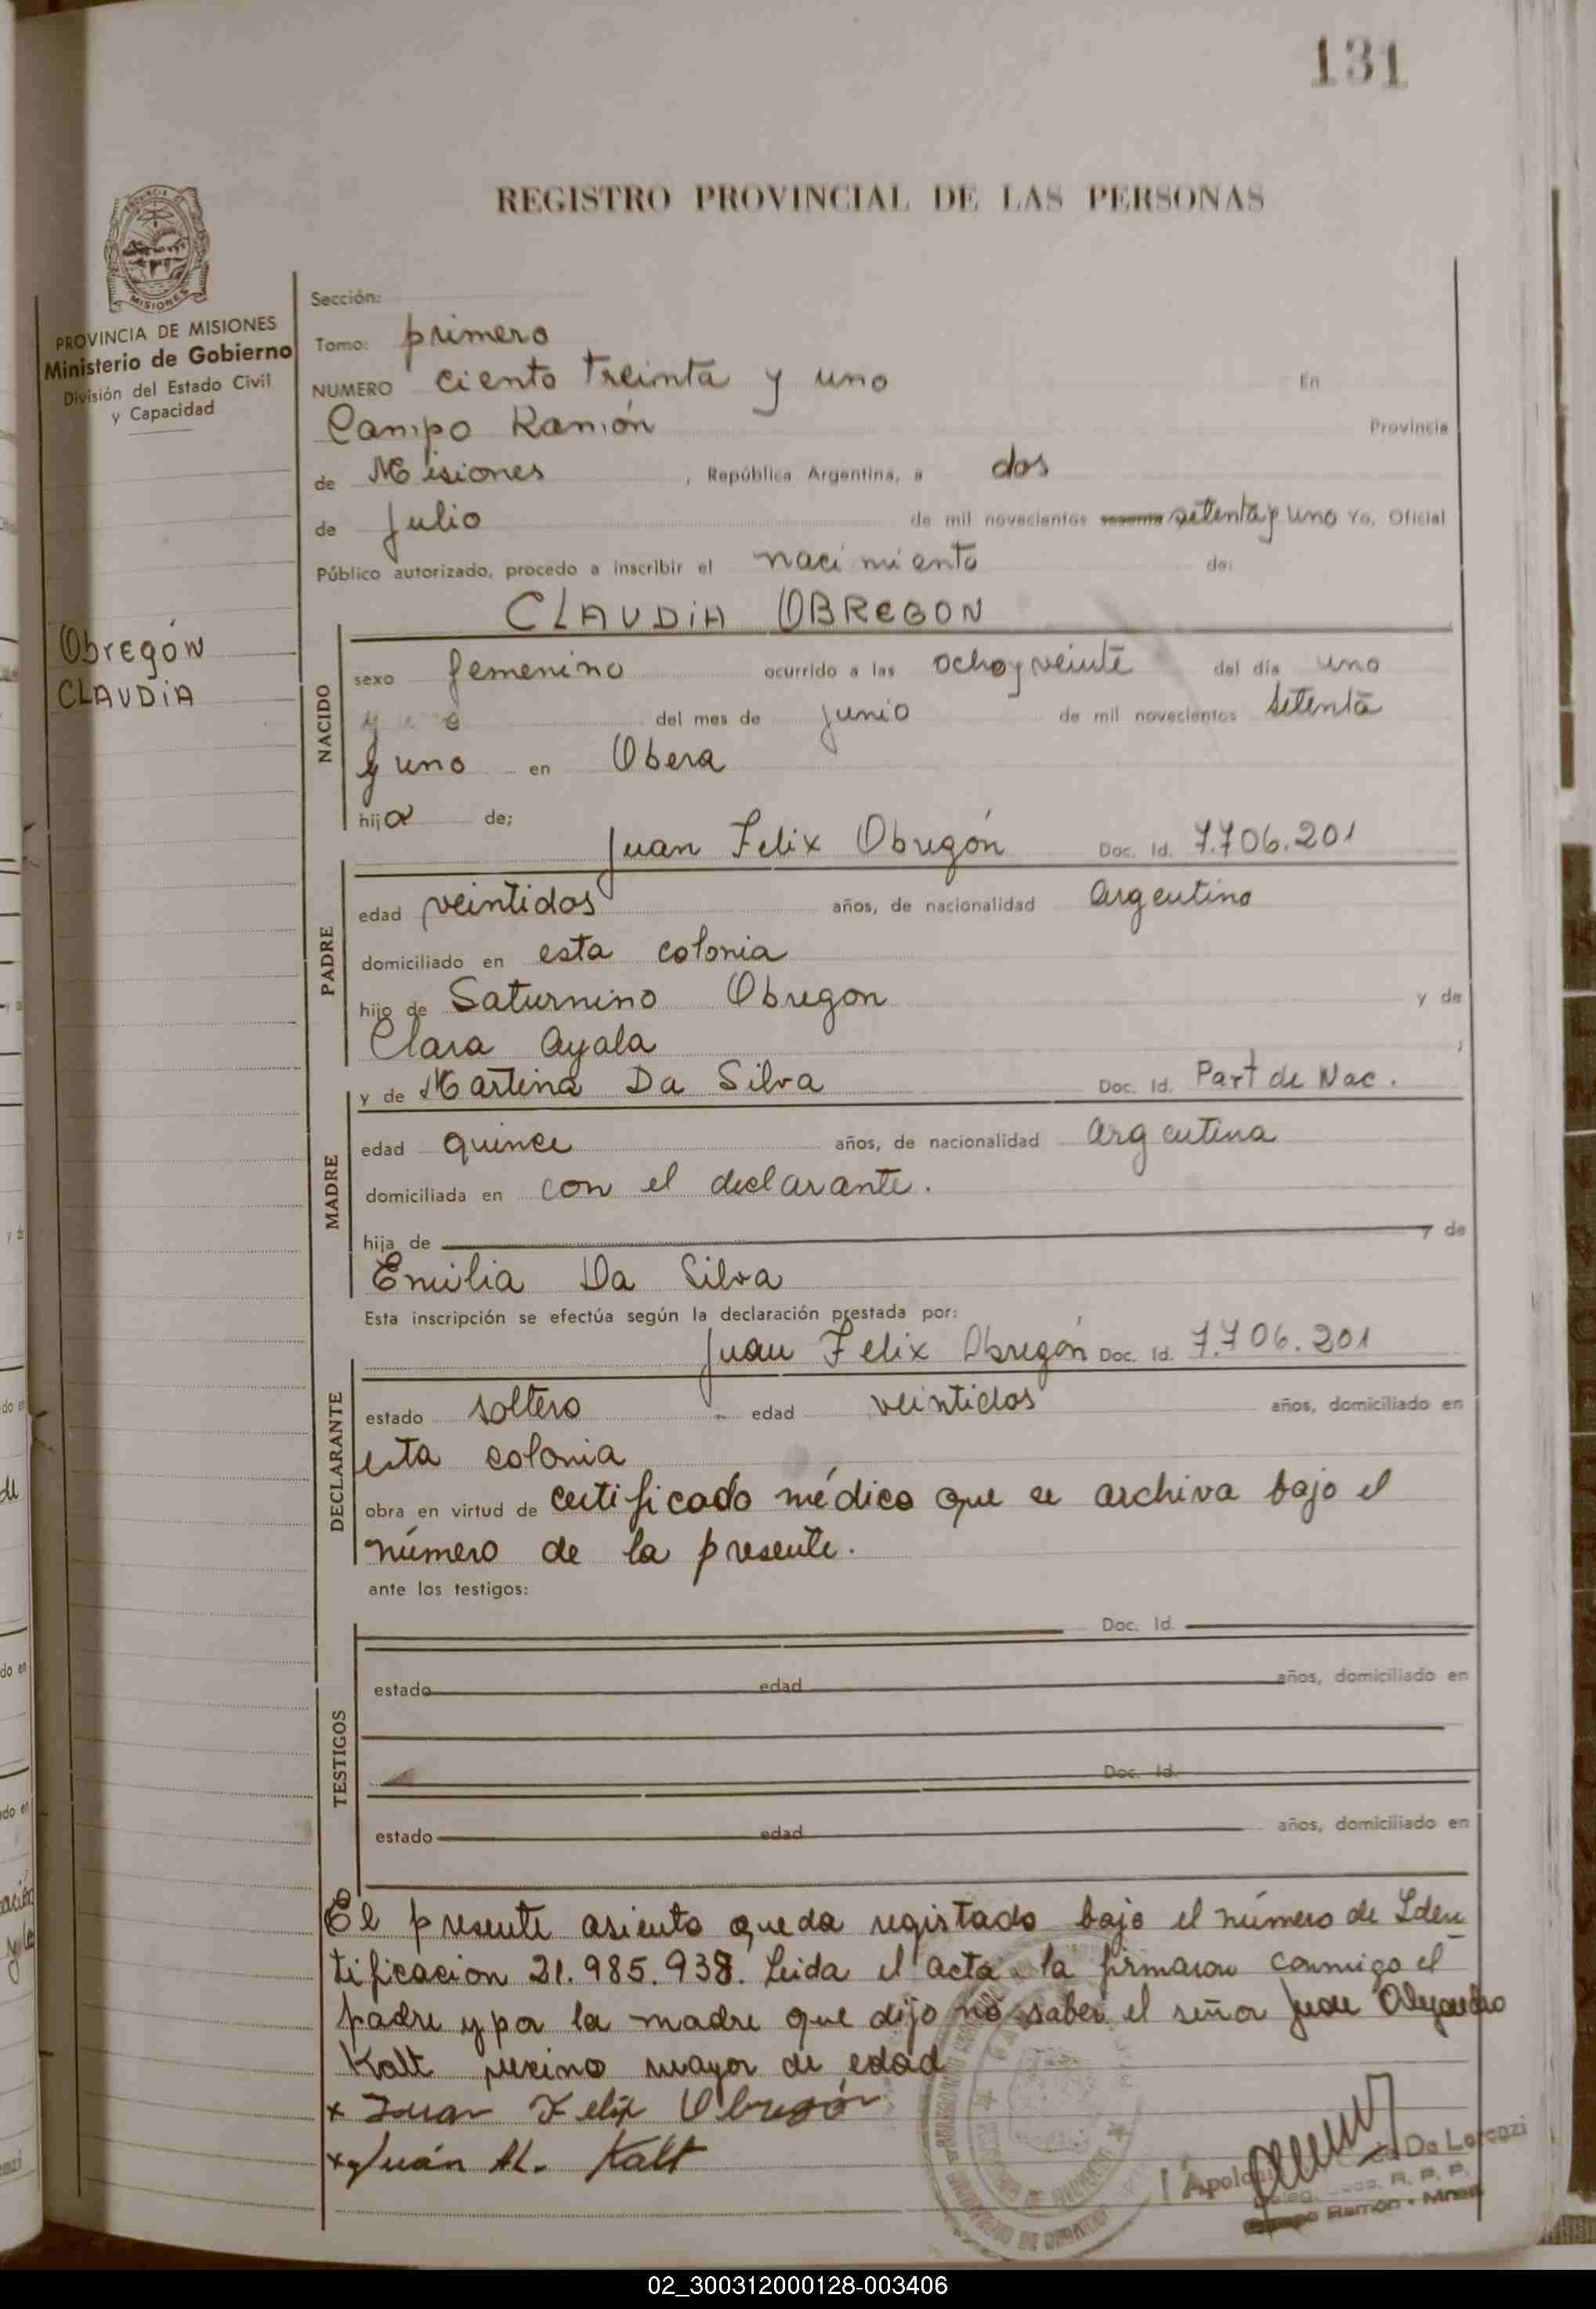 131
REGISTRO PROVINCIAL DE LAS PERSONAS
PROVINCIA
MISIONES
PROVINCIA DE MISIONES
Ministerio de Gobierno
División del Estado Civil
y Capacidad
Obregón
CLAUDiA
Sección:
Tomo: primero
NUMERO ciento treinta y uno En
Campo Ramón Provincia
de Misiones, República Argentina, a dos
de Julio de mil novecientos setenta y uno Yo, Oficial
Público autorizado, procedo a inscribir el nacimiento de:
CLAUDiA OBREGON
NACIDO
sexo femenino ocurrido a las ocho y veinte del día uno
del mes de junio de mil novecientos setenta
y uno en Obera
hija de;
Juan Felix Obregón Doc. Id. 7.706.201
PADRE
edad veintidos años, de nacionalidad argentino
domiciliado en esta colonia
hijo de Saturnino Obregon y de
Clara Ayala ;
y de Martina Da Silva Doc. Id. Part de Nac.
MADRE
edad quince años, de nacionalidad argentina
domiciliada en con el declarante.
hija de y de
Emilia Da Silva
Esta inscripción se efectúa según la declaración prestada por:
Juan Felix Obregón Doc. Id. 7.706.201
DECLARANTE
estado soltero edad veintidos años, domiciliado en
esta colonia
obra en virtud de certificado médico que se archiva bajo el
número de la presente.
ante los testigos:
Doc. Id.
TESTIGOS
estado edad años, domiciliado en
Doc. Id.
estado edad años, domiciliado en
El presente asiento queda registado bajo el número de Iden
tificacion 21.985.938. Leida el acta la firmaron conmigo el
padre y por la madre que dijo no saber el señor Juan
Kalt vecino mayor de edad
x Juan Felix Obregón
x Juán Al. Kalt
De Lorenzi
R. P. P.
Ramón - Mnes
02_300312000128-003406